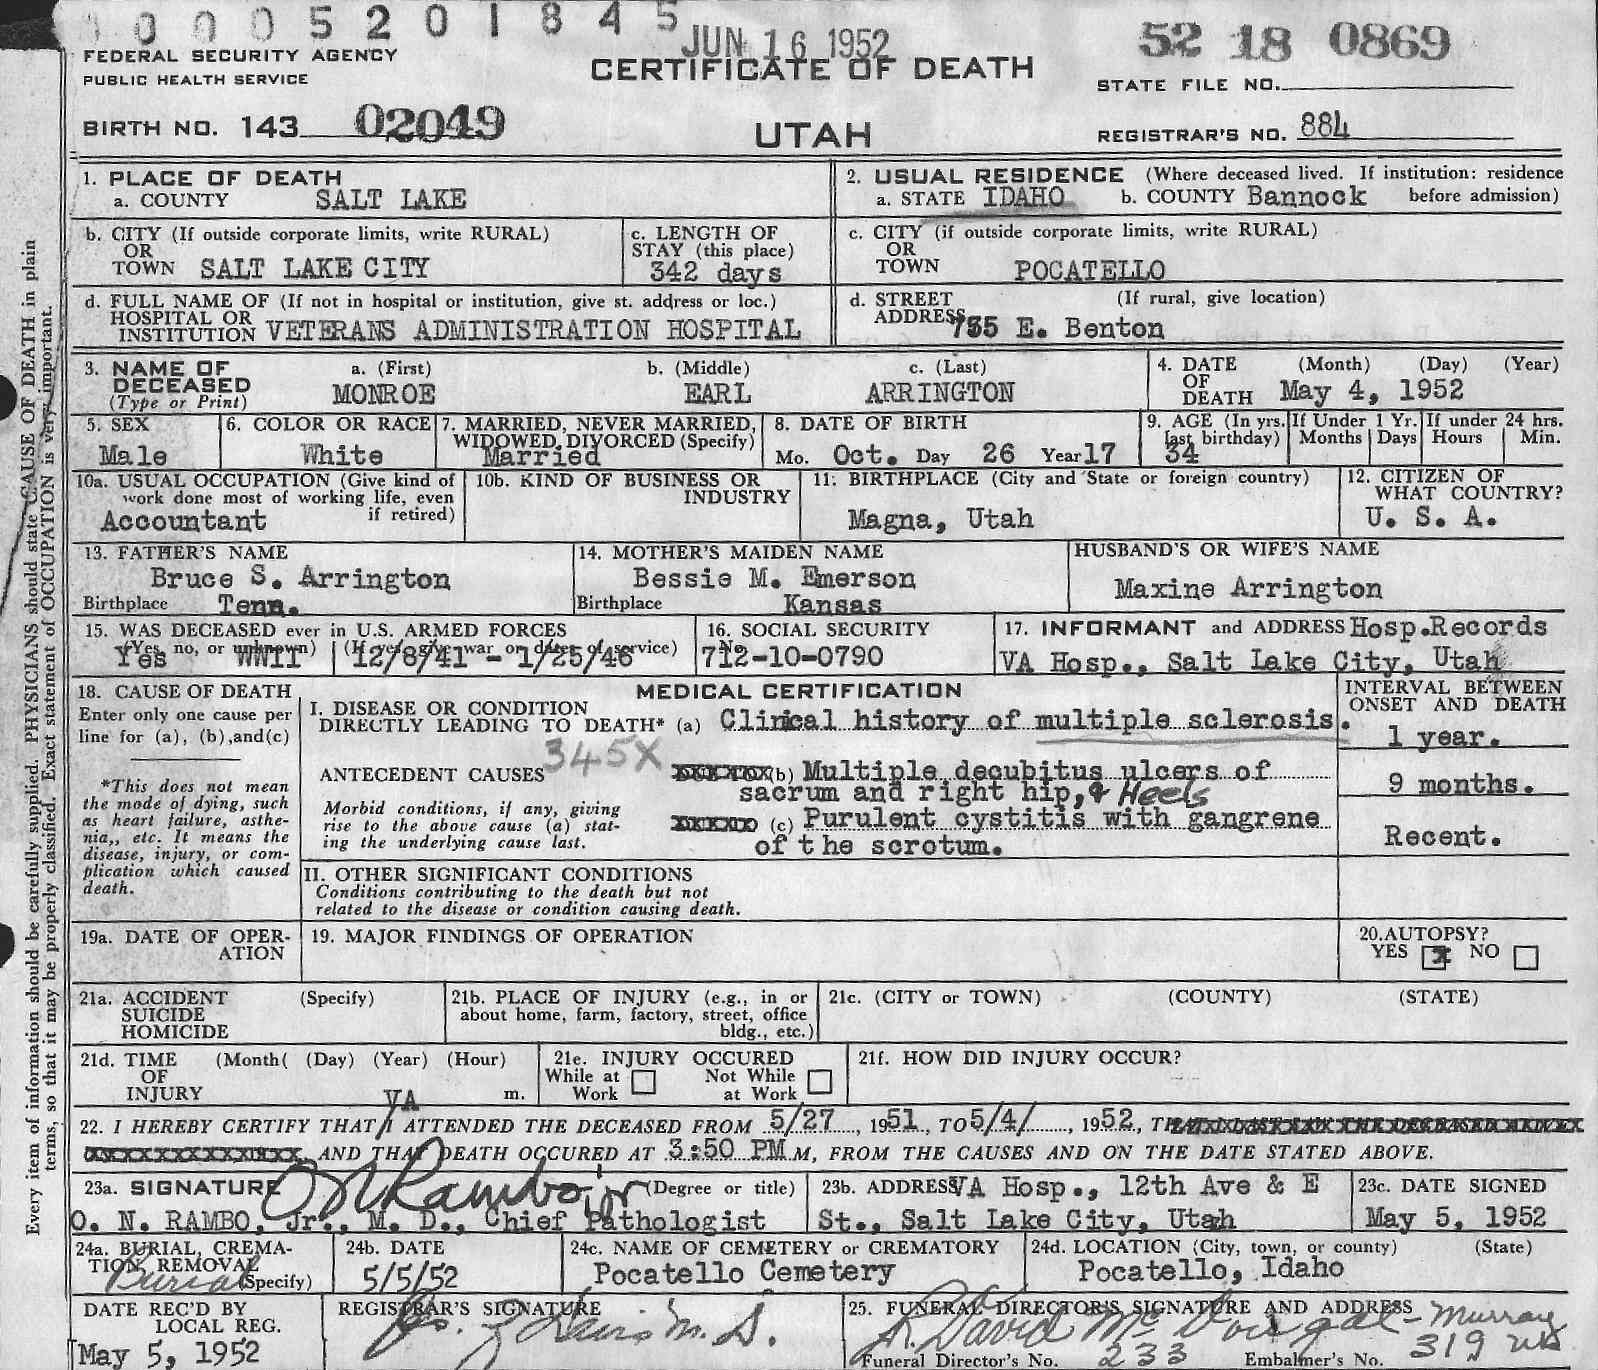 0 0 0 5 2 0 1 8 4 5
JUN 16 1952
52 18 0869
FEDERAL SECURITY AGENCY
PUBLIC HEALTH SERVICE
CERTIFICATE OF DEATH
STATE FILE NO.
BIRTH NO. 143 02049
UTAH
REGISTRAR'S NO. 884
Every item of information should be carefully supplied. PHYSICIANS should state CAUSE OF DEATH in plain
terms, so that it may be properly classified. Exact statement of OCCUPATION is very important.
1. PLACE OF DEATH
a. COUNTY SALT LAKE
2. USUAL RESIDENCE (Where deceased lived. If institution: residence
a. STATE IDAHO b. COUNTY Bannock before admission)
b. CITY (If outside corporate limits, write RURAL)
OR
TOWN SALT LAKE CITY
c. LENGTH OF
STAY (this place)
342 days
c. CITY (if outside corporate limits, write RURAL)
OR
TOWN POCATELLO
d. FULL NAME OF (If not in hospital or institution, give st. address or loc.)
HOSPITAL OR
INSTITUTION VETERANS ADMINISTRATION HOSPITAL
d. STREET (If rural, give location)
ADDRESS 735 E. Benton
3. NAME OF a. (First) b. (Middle) c. (Last)
DECEASED
(Type or Print) MONROE EARL ARRINGTON
4. DATE (Month) (Day) (Year)
OF
DEATH May 4, 1952
5. SEX
Male
6. COLOR OR RACE
White
7. MARRIED, NEVER MARRIED,
WIDOWED, DIVORCED (Specify)
Married
8. DATE OF BIRTH
Mo. Oct. Day 26 Year 17
9. AGE (In yrs.
last birthday)
34
If Under 1 Yr.
Months Days
If under 24 hrs.
Hours Min.
10a. USUAL OCCUPATION (Give kind of
work done most of working life, even
if retired)
Accountant
10b. KIND OF BUSINESS OR
INDUSTRY
11. BIRTHPLACE (City and State or foreign country)
Magna, Utah
12. CITIZEN OF
WHAT COUNTRY?
U. S. A.
13. FATHER'S NAME
Bruce S. Arrington
Birthplace Tenn.
14. MOTHER'S MAIDEN NAME
Bessie M. Emerson
Birthplace Kansas
HUSBAND'S OR WIFE'S NAME
Maxine Arrington
15. WAS DECEASED ever in U.S. ARMED FORCES
(Yes, no, or unknown) (If yes, give war or dates of service)
Yes WWII 12/8/41 - 1/25/46
16. SOCIAL SECURITY
No.
712-10-0790
17. INFORMANT and ADDRESS Hosp.Records
VA Hosp., Salt Lake City, Utah
18. CAUSE OF DEATH
Enter only one cause per
line for (a), (b), and (c)
*This does not mean
the mode of dying, such
as heart failure, asthe-
nia,, etc. It means the
disease, injury, or com-
plication which caused
death.
MEDICAL CERTIFICATION
INTERVAL BETWEEN
ONSET AND DEATH
I. DISEASE OR CONDITION
DIRECTLY LEADING TO DEATH* (a) Clinical history of multiple sclerosis.
1 year.
345X
ANTECEDENT CAUSES
Morbid conditions, if any, giving
rise to the above cause (a) stat-
ing the underlying cause last.
(b) Multiple decubitus ulcers of
sacrum and right hip, & Heels
9 months.
(c) Purulent cystitis with gangrene
of the scrotum.
Recent.
II. OTHER SIGNIFICANT CONDITIONS
Conditions contributing to the death but not
related to the disease or condition causing death.
19a. DATE OF OPER-
ATION
19. MAJOR FINDINGS OF OPERATION
20. AUTOPSY?
YES x NO
21a. ACCIDENT (Specify)
SUICIDE
HOMICIDE
21b. PLACE OF INJURY (e.g., in or
about home, farm, factory, street, office
bldg., etc.)
21c. (CITY or TOWN) (COUNTY) (STATE)
21d. TIME (Month( (Day) (Year) (Hour)
OF
INJURY m.
21e. INJURY OCCURED
While at Not While
Work at Work
21f. HOW DID INJURY OCCUR?
VA
22. I HEREBY CERTIFY THAT I ATTENDED THE DECEASED FROM 5/27, 1951, TO 5/4/, 1952,
AND THAT DEATH OCCURED AT 3:50 PM M, FROM THE CAUSES AND ON THE DATE STATED ABOVE.
23a. SIGNATURE O N Rambo jr (Degree or title)
O. N. RAMBO, Jr., M. D., Chief Pathologist
23b. ADDRESS VA Hosp., 12th Ave & E
St., Salt Lake City, Utah
23c. DATE SIGNED
May 5, 1952
24a. BURIAL, CREMA-
TION, REMOVAL
(Specify)
Burial
24b. DATE
5/5/52
24c. NAME OF CEMETERY or CREMATORY
Pocatello Cemetery
24d. LOCATION (City, town, or county) (State)
Pocatello, Idaho
DATE REC'D BY
LOCAL REG.
May 5, 1952
REGISTRAR'S SIGNATURE
M. D.
25. FUNERAL DIRECTOR'S SIGNATURE AND ADDRESS
David Mc Dougal - Murray
Funeral Director's No. 233 Embalmer's No. 319